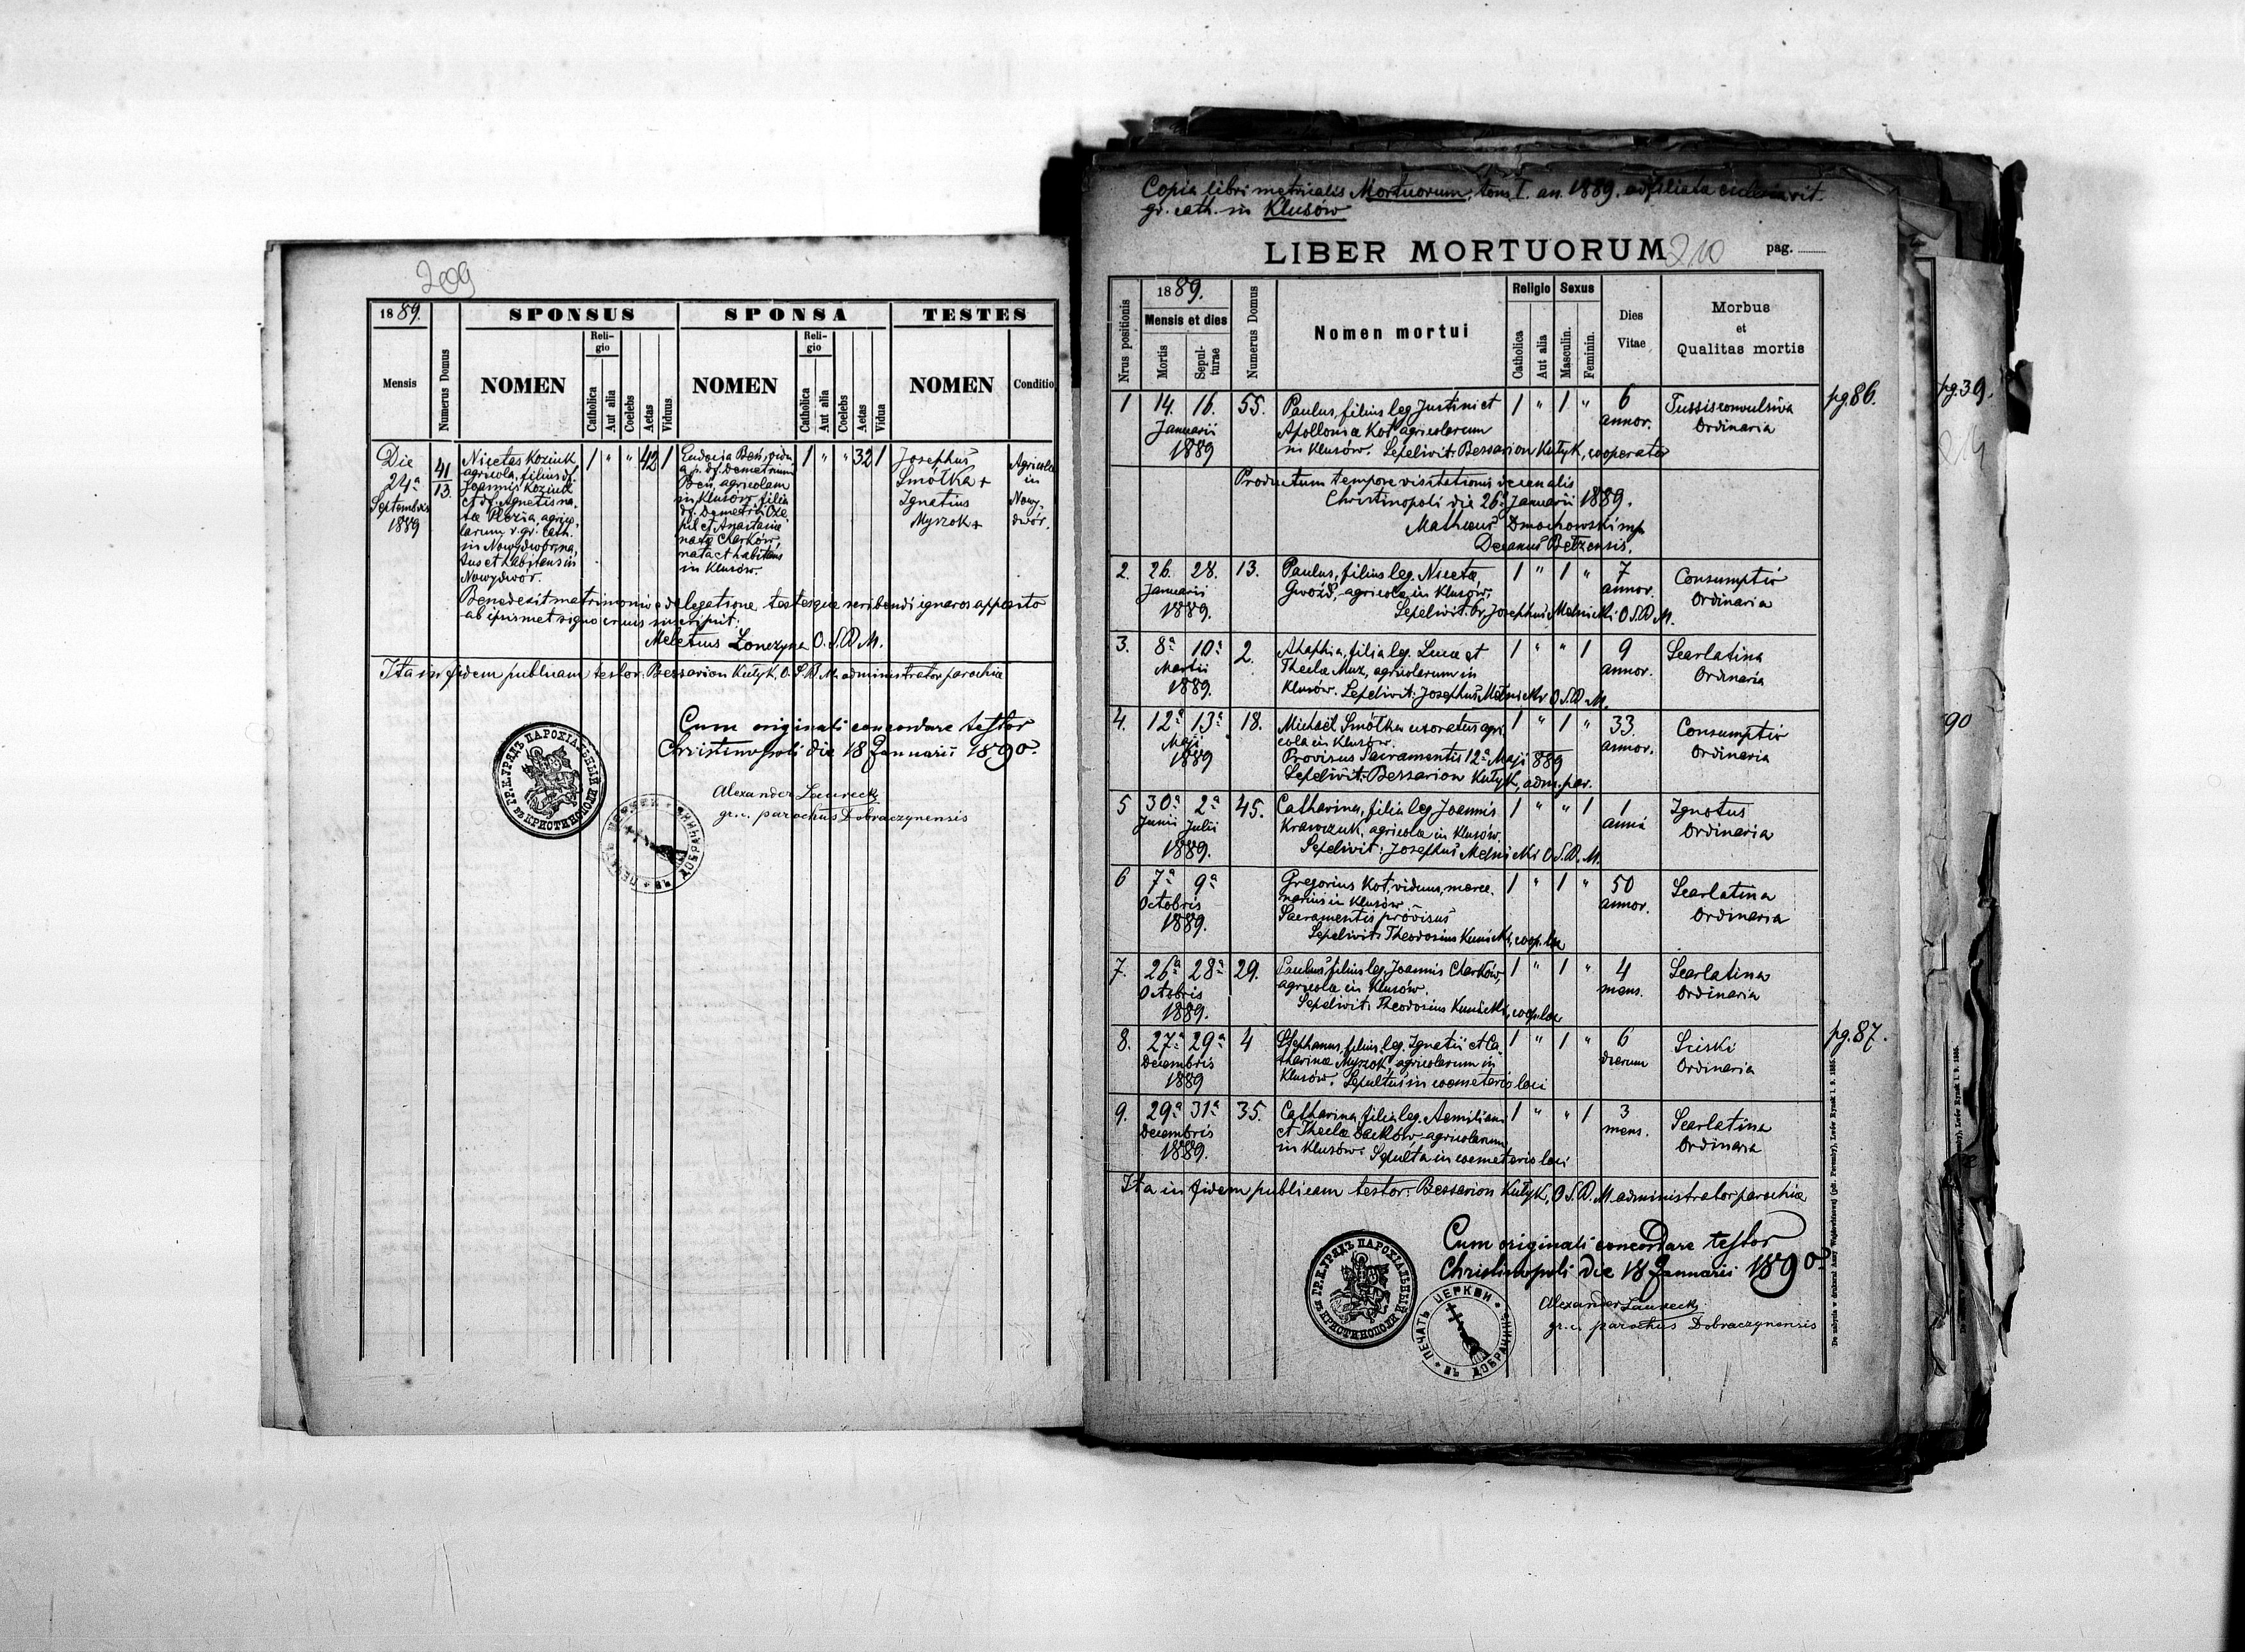 209
1889.
SPONSUS
SPONSA
TESTES
Mensis
Numerus Domus
NOMEN
Religio
Catholica
Aut alia
Coelebs
Aetas
Viduus
NOMEN
Religio
Catholica
Aut alia
Coelebs
Aetas
Vidua
NOMEN
Conditio
Die
24ª
Septembris
1889
41
13.
Nicetas Koziuk
agricola, filius df.
Joannis Koziuk
et df. Agnetis na-
tae agrico-
larum r. gr. cath.
in Nowydwór, na-
tus et habitans in
Nowydwór.
1 " " 42 1
Eudocia Beń, vidu
a p. df. Demetrium
Beń, agricolam
in Klusów, filia
df. Demetrii
et Anastasiae
natae Charków,
nata et habitans
in Klusów.
1 " " 32 1
Josephus
Smółka +
Ignatius
Myszok +
Agricolae
in
Nowy-
dwór.
Benedixit matrimonio e delegatione, testesque scribendi ignaros apposito
ab ipsismet signo crucis
Meletius Łonczyna O.S.B.M.
Ita in fidem publicam testor: Bessarion Kułyk, O.S.B.M. administrator parochiae
Cum originali concordare testor
Christinopoli die 18 Januarii 1890.
Alexander Laurecki
gr.c. parochus Dobraczynensis
ГР.К.УРЯДЪ ПАРОХІАЛЬНЫЙ въ КРИСТИНОПОЛИ
ПЕЧАТЬ ЦЕРКВИ въ ДОБРАЧИНѢ
Copia libri metricalis Mortuorum, tom. I. an. 1889. rit.
gr. cath. in Klusów
LIBER MORTUORUM
210
pag.
Nrus positionis
1889.
Mensis et dies
Mortis
Sepulturae
Numerus Domus
Nomen mortui
Religio
Catholica
Aut alia
Sexus
Masculin.
Feminin.
Dies
Vitae
Morbus
et
Qualitas mortis
1 14. 16. 55. Paulus, filius leg. Justini et 1 " 1 " 6 Tussis convulsiva
Januarii Apolloniae Kot agricolarum annor. Ordinaria
1889 in Klusów. Sepelivit Bessarion Kułyk, cooperator
pg. 86.
Productum tempore visitationis decanalis
Christinopoli die 26. Januarii 1889.
Matheus Dmochowski mp
Decanus Bełzensis.
2. 26. 28. 13. Paulus, filius leg. Nicetae 1 " 1 " 7 Consumptio
Januarii Gwóźd, agricolae in Klusów. annor. Ordinaria
1889. Sepelivit: Josephus Melnicki O.S.B.M.
3. 8ª 10ª 2. Ahaphia, filia leg. Lucae et 1 " " 1 9 Scarlatina
Martii Theclae Muz, agricolarum in annor. Ordinaria
1889. Klusów. Sepelivit: Josephus Melnicki O.S.B.M.
4. 12ª 13ª 18. Michael Smółka uxoratus agri- 1 " 1 " 33 Consumptio
Maji cola in Klusów. annor. Ordinaria
1889 Provisus Sacramentis 12ª Maji 889
Sepelivit: Bessarion Kułyk, adm. par.
5 30ª 2ª 45. Catharina, filia leg. Joannis 1 " " 1 1 Ignotus
Junii Julii Krawczuk, agricolae in Klusów. anni Ordinaria
1889. Sepelivit: Josephus Melnicki O.S.B.M.
6 7ª 9ª Gregorius Kot, viduus, merce- 1 " 1 " 50 Scarlatina
Octobris narius in Klusów annor. Ordinaria
1889. Sacramentis provisus
Sepelivit: Theodosius Kunicki, coop. loci
7. 26ª 28ª 29. Paulus filius leg. Joannis Charków, 1 " 1 " 4 Scarlatina
Octobris agricolae in Klusów. mens. Ordinaria
1889. Sepelivit: Theodosius Kunicki, coop. loci
8. 27ª 29ª 4 Stephanus, filius leg. Ignatii et Ca- 1 " 1 " 6 Sciski
Decembris tharinae Myszok, agricolarum in dierum Ordinaria
1889 Klusów. Sepultus in coemeterio loci
pg. 87.
9. 29ª 31ª 35. Catharina, filia leg. Aemiliani 1 " " 1 3 Scarlatina
Decembris et Theclae agricolarum mens. Ordinaria
1889. in Klusów. Sepulta in coemeterio loci
Ita in fidem publicam testor: Bessarion Kułyk, O.S.B.M. administrator parochiae
Cum originali concordare testor
Christinopoli die 18 Januarii 1890.
Alexander Laurecki
gr.c. parochus Dobraczynensis
ГР.К.УРЯДЪ ПАРОХІАЛЬНЫЙ въ КРИСТИНОПОЛИ
ПЕЧАТЬ ЦЕРКВИ въ ДОБРАЧИНѢ
pg. 39.
90